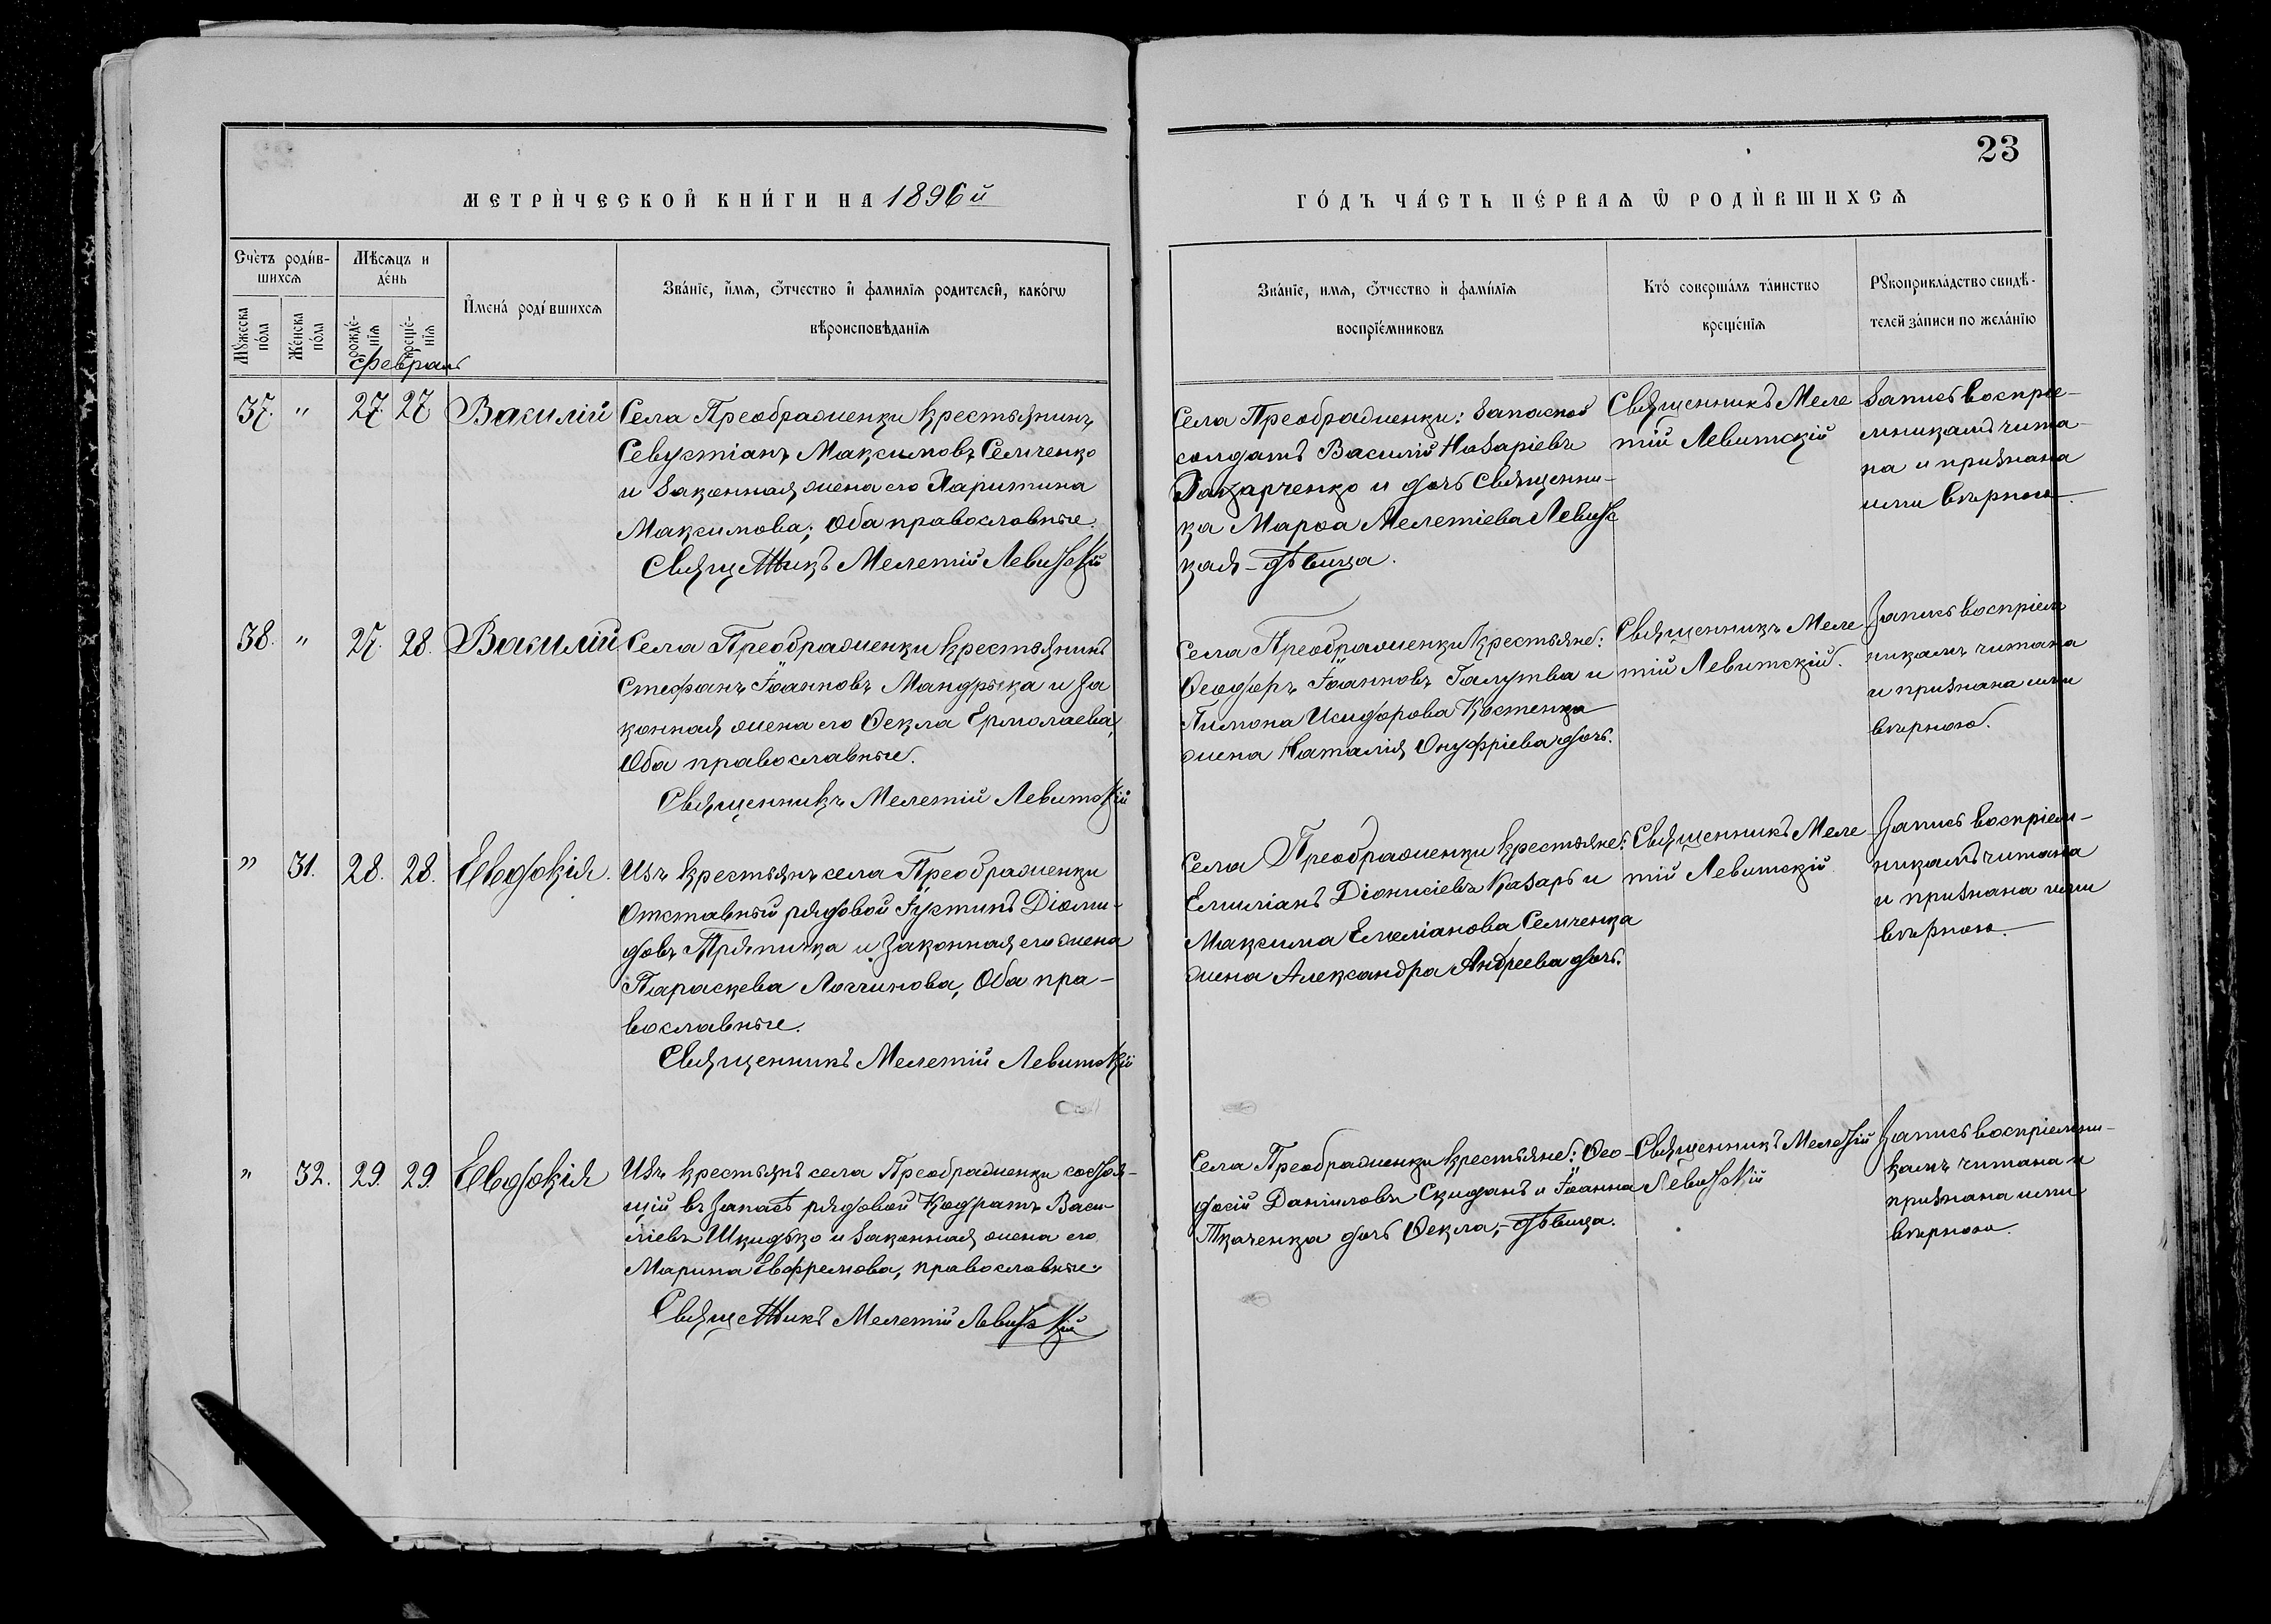 23
МЕТРИ́ЧЕСКОЙ КНИ́ГИ НА 1896й
ГО́ДЪ ЧА́СТЬ ПЕ́РВАѦ Ѡ҆ РОДИ́ВШИХСѦ
Сче́тъ роди́в-
шихсѧ
Мѣ́сѧцъ и
де́нь
Мꙋ́жеска
по́ла
Же́нска
по́ла
рожде́-
нїѧ
креще́-
нїѧ
И҆мена́ роди́вшихсѧ
Зва́нїе, и҆́мѧ, ѻ҆́тчество и҆ фами́лїѧ роди́телей, како́гѡ
вѣроисповѣ́данїѧ
Зва́нїе, и́мѧ, ѻ҆́тчество и҆ фами́лїѧ
воспрїе́мниковъ
Кто́ соверша́лъ та́инство
креще́нїѧ
Рꙋкоприкла́дство свидѣ́-
телей за́писи по жела́нїю
Февраль
37. " 27. 27 Василій
Села Преображенки крестьянинъ
Севустіанъ Максимовъ Семченко
и законная жена его Харитина
Максимова; Оба православные.
Священникъ Мелетій Левитскій
Села Преображенки: запасной
солдатъ Василій Назаріевъ
Захарченко и дочь Священни-
ка Марѳа Мелетіева Левитс
кая - дѣвица.
Священникъ Меле
тій Левитскій
Запись воспріе-
мникамъ чита-
на и признана
ими вѣрною.
38. " 27. 28. Василій
Села Преображенки крестьянинъ
Стефанъ Іоанновъ Мандрыка и за
конная жена его Ѳекла Ермолаева,
Оба православные.
Священникъ Мелетій Левитскій
Села Преображенки крестьяне:
Ѳеодоръ Іоанновъ Галутва и
Пимона Исидорова Костенка
жена Наталія Онуфріева дочь.
Священникъ Меле
тій Левитскій.
Запись воспріем
никамъ читана
и признана ими
вѣрною.
" 31. 28. 28. Евдокія.
Изъ крестьянъ села Преображенки
Отставный рядовой Іустинъ Діоми-
довъ Тряпичка и законная его жена
Параскева Логгинова, Оба пра-
вославные.
Священникъ Мелетій Левитскій
Села Преображенки крестьяне:
Емиліанъ Діонисіевъ Казаръ и
Максима Емеліанова Семченка
жена Александра Андреева дочь.
Священникъ Меле
тій Левитскій
Запись воспріем-
никамъ читана
и признана ими
вѣрною.
" 32. 29. 29. Евдокія
Изъ крестьянъ села Преображенки состоя-
щій въ запасѣ рядовой Кодратъ Васи-
ліевъ Шкидько и законная жена его
Марина Евфремова, православные.
Священникъ Мелетій Левитскій
Села Преображенки крестьяне: Ѳео-
досій Даніиловъ Скиданъ и Іоанна
Ткаченка дочь Ѳекла,- дѣвица.
Священникъ Мелетій
Левитскій
Запись воспріемни-
камъ читана и
признана ими
вѣрною.